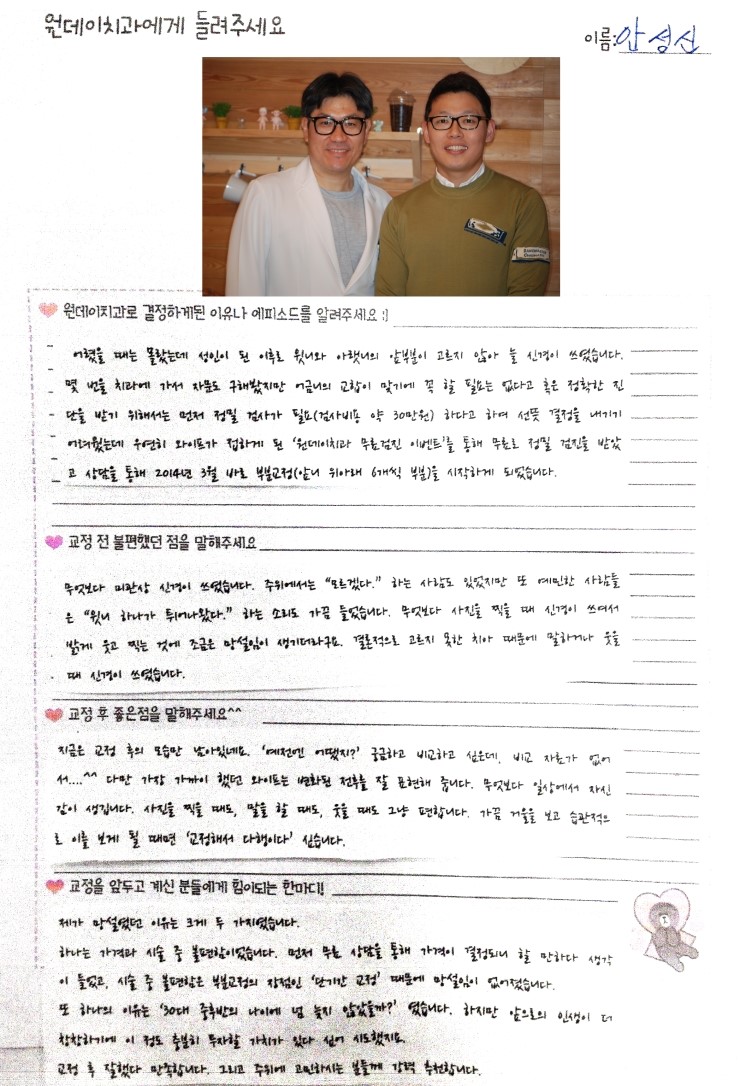 원데이치과에게 들려주세요
이름: 안성신
원데이치과로 결정하게된 이유나 에피소드를 알려주세요 :)
어렸을 때는 몰랐는데 성인이 된 이후로 윗니와 아랫니의 앞부분이 고르지 않아 늘 신경이 쓰였습니다.
몇 번을 치과에 가서 자문도 구해봤지만 어금니의 교합이 맞기에 꼭 할 필요는 없다고 혹은 정확한 진
단을 받기 위해서는 먼저 정밀 검사가 필요(검사비용 약 30만원) 하다고 하여 선뜻 결정을 내기기
어려웠는데 우연히 와이프가 접하게 된 '원데이치과 무료검진 이벤트'를 통해 무료로 정밀 검진을 받았
고 상담을 통해 2014년 3월 바로 부분교정(앞니 위아래 6개씩 부분)을 시작하게 되었습니다.
교정 전 불편했던 점을 말해주세요
무엇보다 미관상 신경이 쓰였습니다. 주위에서는 "모르겠다." 하는 사람도 있었지만 또 예민한 사람들
은 "윗니 하나가 튀어나왔다." 하는 소리도 가끔 들었습니다. 무엇보다 사진을 찍을 때 신경이 쓰여서
밝게 웃고 찍는 것에 조금은 망설임이 생기더라구요. 결론적으로 고르지 못한 치아 때문에 말하거나 웃을
때 신경이 쓰였습니다.
교정 후 좋은점을 말해주세요^^
지금은 교정 후의 모습만 남아있네요. '예전엔 어땠지?' 궁금하고 비교하고 싶은데, 비교 자료가 없어
서....^^ 다만 가장 가까이 했던 와이프는 변화된 전후를 잘 표현해 줍니다. 무엇보다 일상에서 자신
감이 생깁니다. 사진을 찍을 때도, 말을 할 때도, 웃을 때도 그냥 편합니다. 가끔 거울을 보고 습관적으
로 이를 보게 될 때면 '교정해서 다행이다' 싶습니다.
교정을 앞두고 계신 분들에게 힘이되는 한마디!
제가 망설였던 이유는 크게 두 가지였습니다.
하나는 가격과 시술 중 불편함이었습니다. 먼저 무료 상담을 통해 가격이 결정되니 할 만하다 생각
이 들었고, 시술 중 불편함은 부분교정의 장점인 '단기간 교정' 때문에 망설임이 없어졌습니다.
또 하나의 이유는 '30대 중후반의 나이에 넘 늦지 않았을까?' 였습니다. 하지만 앞으로의 인생이 더
창창하기에 이 정도 충분히 투자할 가치가 있다 싶어 시도했지요.
교정 후 잘했다 만족합니다. 그리고 주위에 고민하시는 분들께 강력 추천합니다.